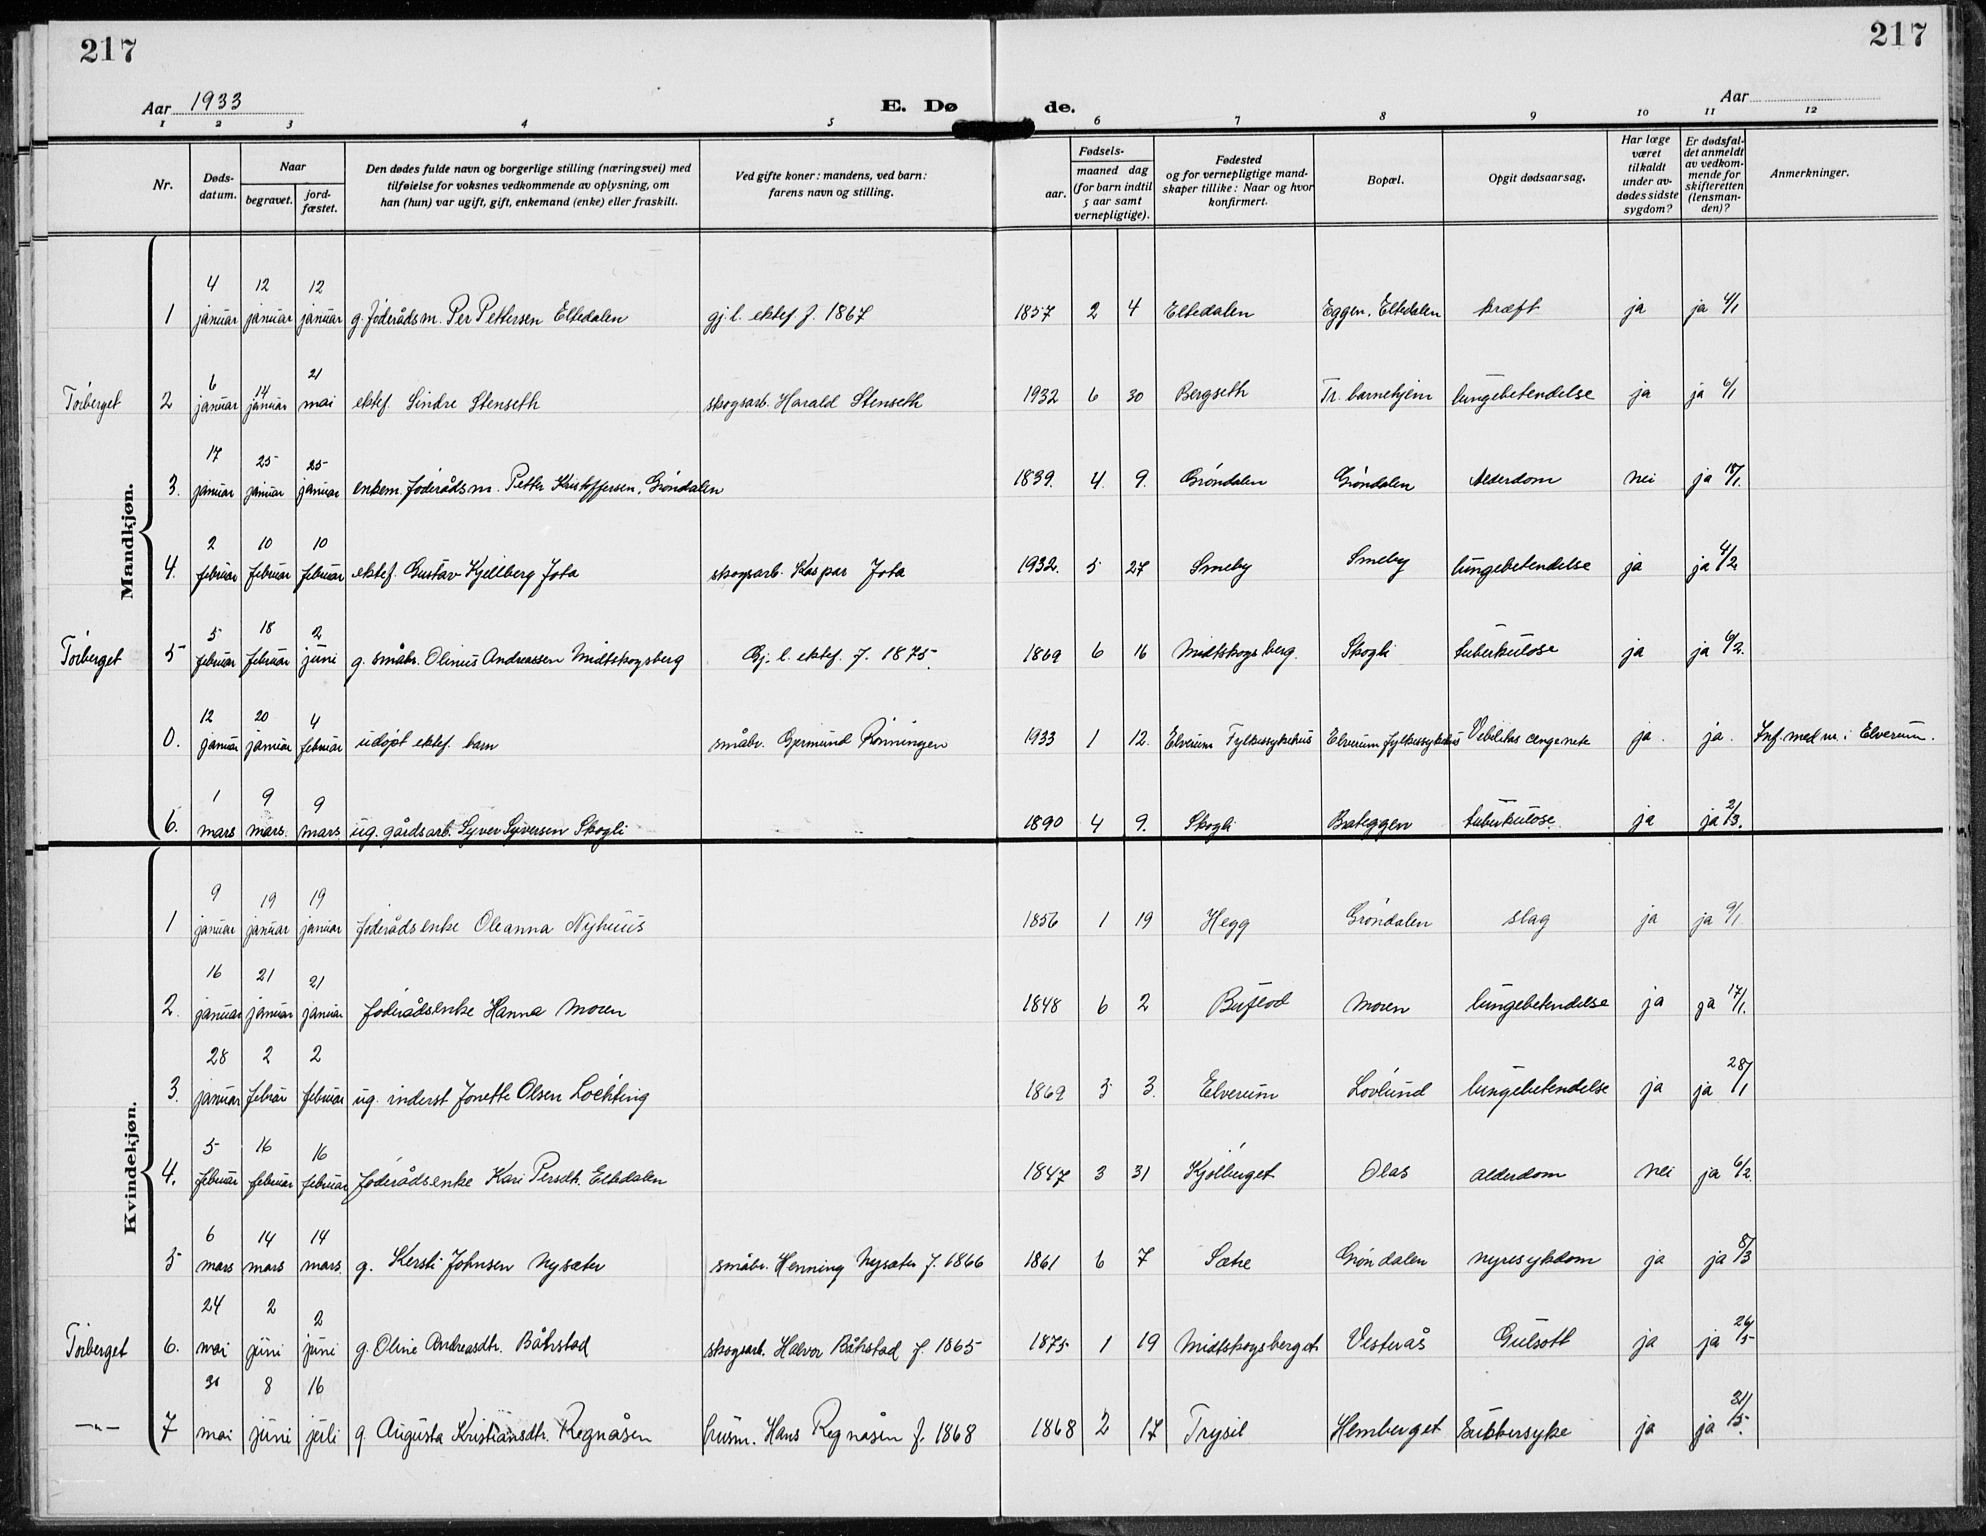 217
217
Aar 1933
E. Dø de.
Aar
1 2 3 4 5 6 7 8 9 10 11 12
Nr.
Døds-
datum.
Naar
begravet.
jord-
fæstet.
Den dødes fulde navn og borgerlige stilling (næringsvei) med
tilføielse for voksnes vedkommende av oplysning, om
han (hun) var ugift, gift, enkemand (enke) eller fraskilt.
Ved gifte koner: mandens, ved barn:
farens navn og stilling.
Fødsels-
aar.
maaned dag
(for barn indtil
5 aar samt
vernepligtige).
Fødested
og for vernepligtige mand-
skaper tillike: Naar og hvor
konfirmert.
Bopæl.
Opgit dødsaarsag.
Har læge
været
tilkaldt
under av-
dødes sidste
sygdom?
Er dødsfal-
det anmeldt
av vedkom-
mende for
skifteretten
(lensman-
den)?
Anmerkninger.
Mandkjøn.
4 12 12
1 januar januar januar g. føderådsm. Per Pettersen Eltedalen gj. l. ektef. f. 1867 1857 2 4 Eltedalen Eggen, Eltedalen kræft ja ja 4/1
6 14 21
Törberget 2 januar januar mai ektef. Sindre Stenseth skogsarb. Harald Stenseth 1932 6 30 Bergseth Tr. barnehjem lungebetendelse ja ja 6/1
17 25 25
3. januar januar januar enkem. føderådsm. Petter Kristoffersen, Grøndalen 1839. 4. 9. Grøndalen Grøndalen Alderdom nei ja 18/1.
2 10 10
4. februar februar februar ektef. Gustav Kjellberg Jota skogsarb. Kaspar Jota 1932. 5 27 Smeby Smeby lungebetendelse ja ja 4/2
5 18 2
Törberget 5 februar februar juni g. småbr. Olinius Andreassen Midtskogsberg Gj. l. ektef. f. 1875. 1869 6 16 Midtskogsberg. Skogli tuberkulose ja ja 6/2.
12 20 4
0. januar januar februar udøpt ektef. barn småbr. Germund Rønningen 1933 1 12. Elverum Fylkessykehus Elverum fylkessykehus ja. ja. Inf. med nr. i Elverum.
1 9 9
6. mars mars. mars. ug. gårdsarb. Syver Syversen Skogli 1890 4 9. Skogli Brateggen tuberkulose. ja ja 2/3.
Kvindekjøn.
9 19 19
1 januar januar januar føderådsenke Oleanna Nyhuus 1856 1 19 Hegg Grøndalen slag ja ja 9/1.
16 21 21
2. januar januar januar føderådsenke Hanna Moren 1848 6 2 Buflod Moren lungebetendelse ja ja 17/1.
28 2 2
3. januar februar februar ug. inderst Jonette Olsen 1869 3 3. Elverum Lövlund lungebetendelse ja ja 28/1
5 16 16
4. februar februar februar føderådsenke Kari Persdt. Eltedalen 1847 3 31 Kjølberget Olas alderdom nei ja 6/2.
6 14 14
5 mars mars mars. g. Kersti Johnsen Nysæter småbr. Henning Nysæter f. 1866 1861 6 7 Sætre Grøndalen nyresykdom ja ja 8/3
24 2 2
Törberget 6. mai juni juni g. Oline Andreasdtr. Båkstad skogsarb. Halvor Båkstad f. 1865 1875 1 19 Midtskogsberget Vesterås Gulsott ja ja 26/5
31 8 16
—"— 7 mai juni juli g. Augusta Kristiansdtr. Regnåsen husm. Hans Regnåsen f. 1868 1868 2 17 Trysil Hemberget Sukkersyke ja ja 31/5.